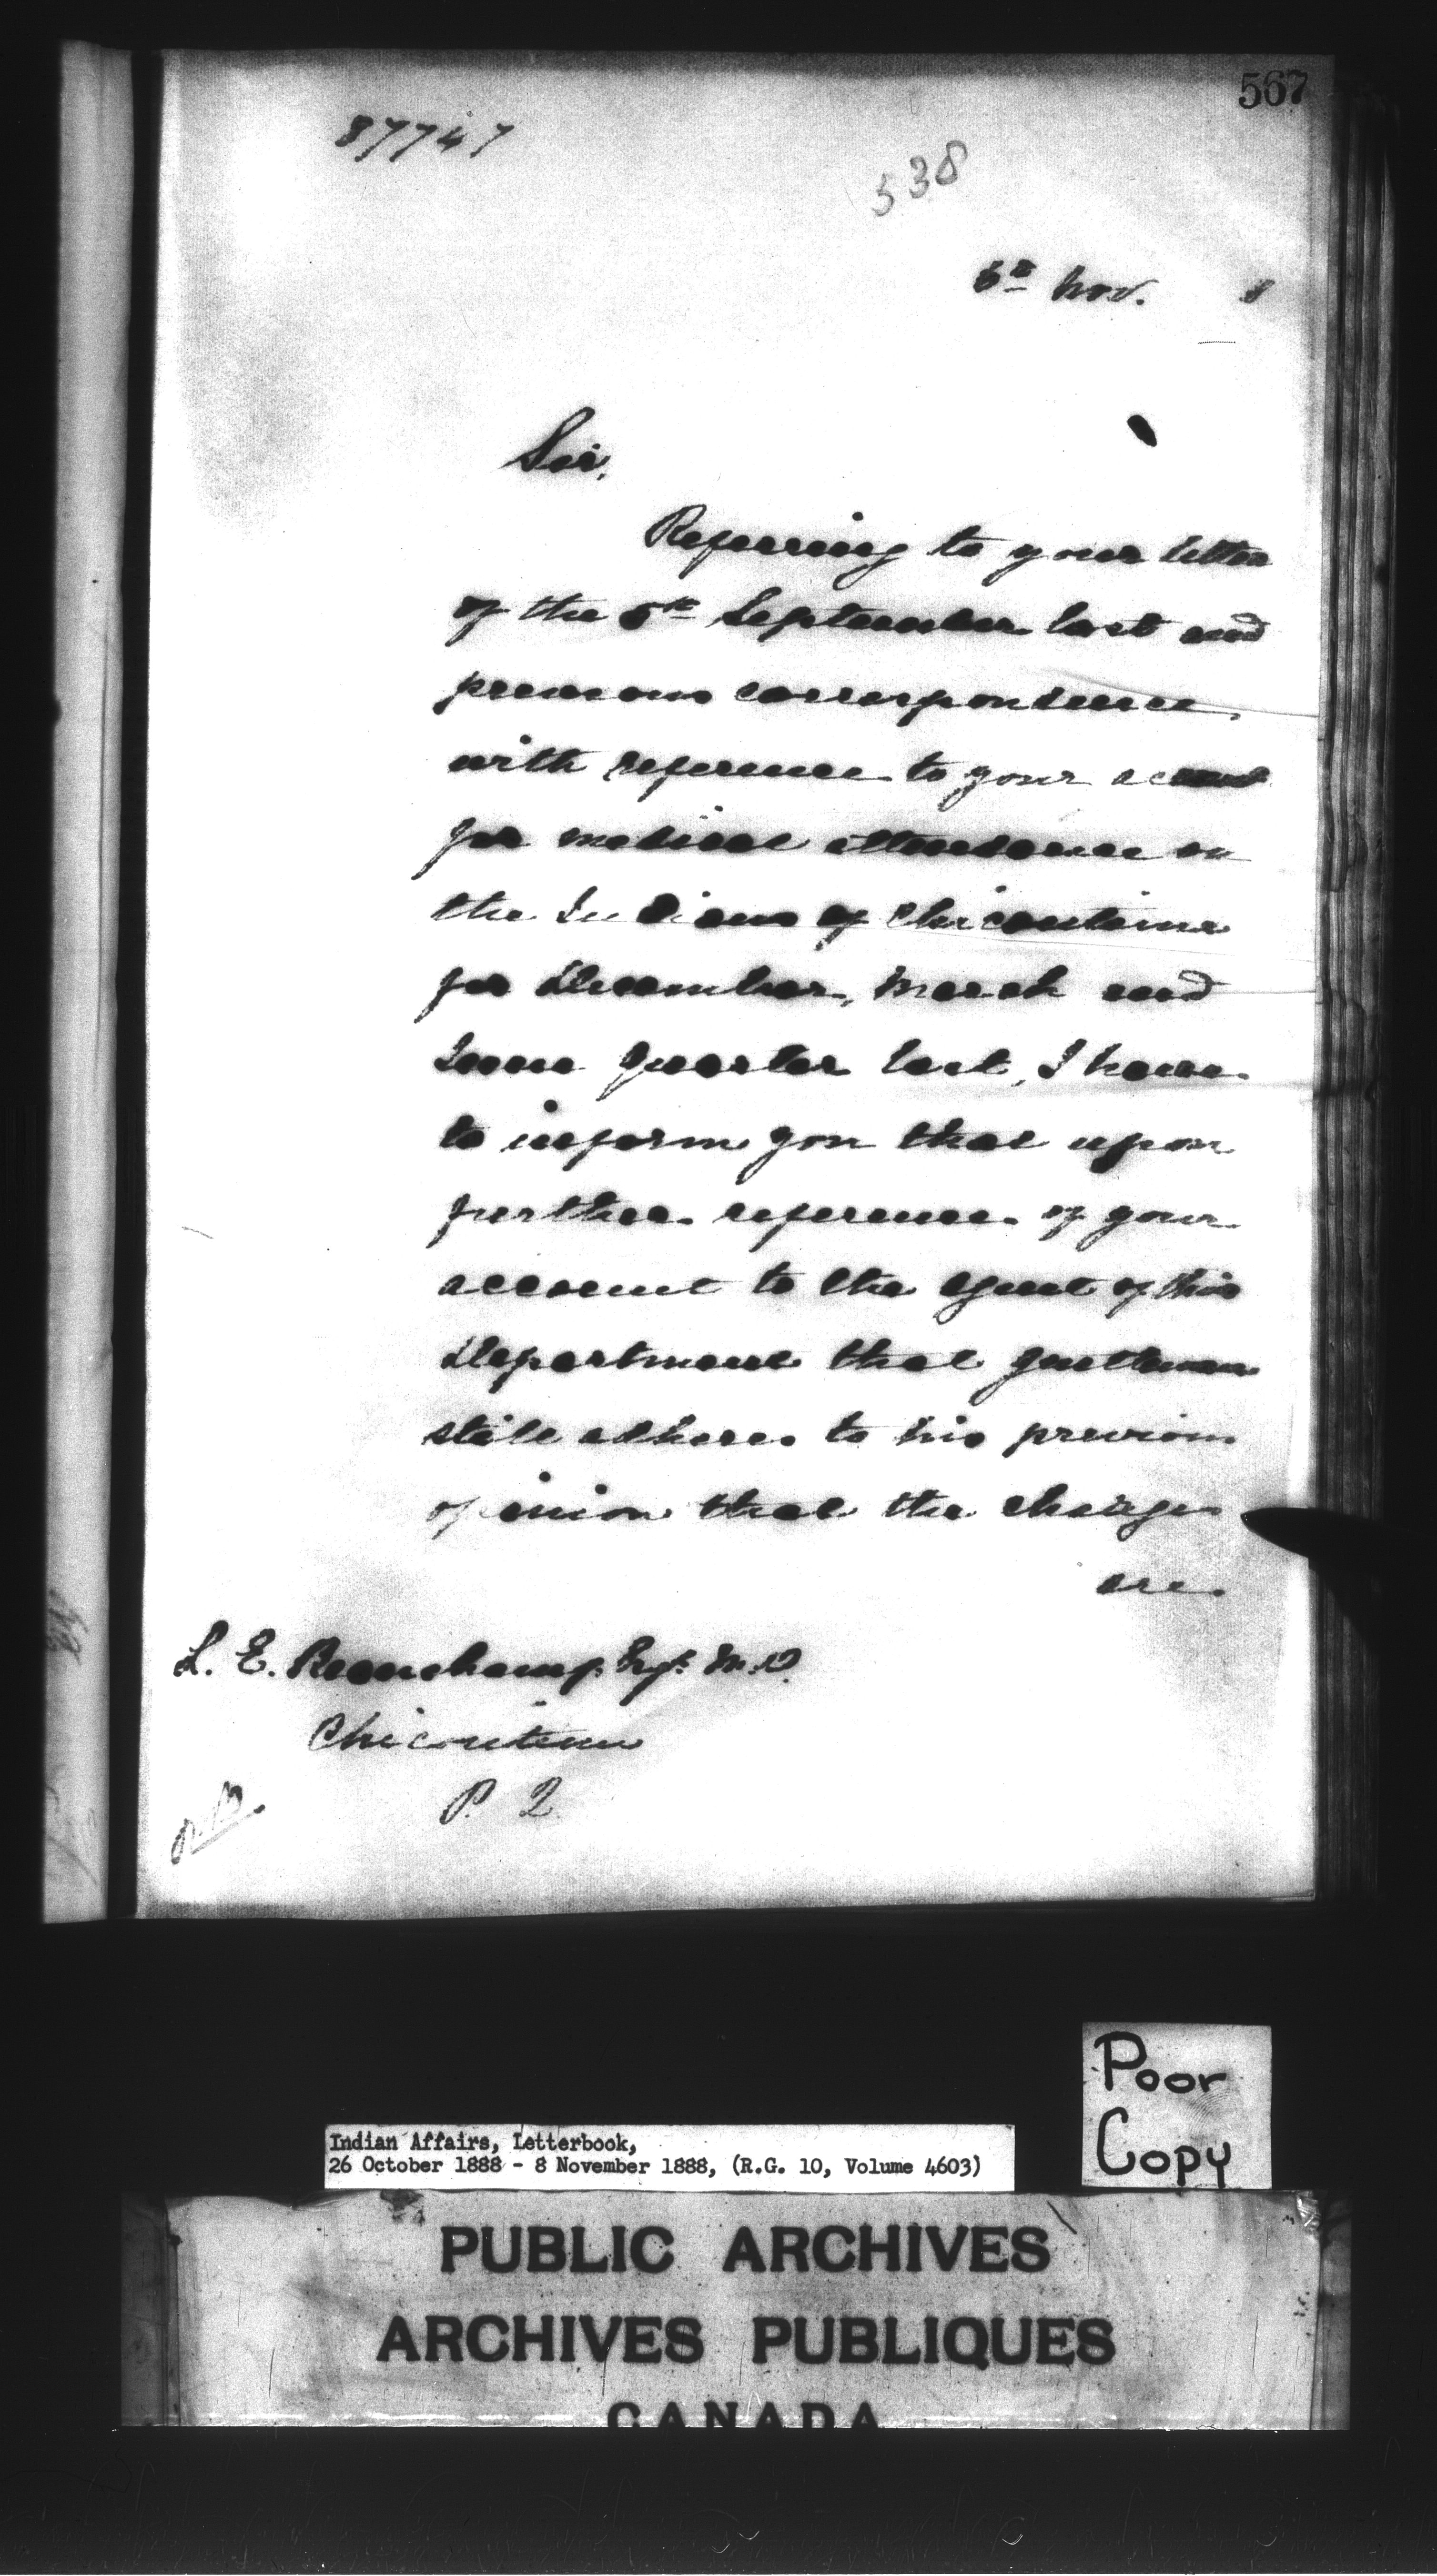 567
87747
538
6th Nov. 8
Sir,
Referring to your letter
of the 5th September last and
previous correspondence
with reference to your account
for medical attendance on
the Indians of Chicoutimi
for December, March and
June Quarter last, I have
to inform you that upon
further reference of your
account to the Agent of this
Department that gentleman
still adheres to his previous
opinion that the charges
are
L. E. Beauchamp Esq. M.D.
Chicoutimi
P. Q.
Poor
Copy
Indian Affairs, Letterbook,
26 October 1888 - 8 November 1888, (R.G. 10, Volume 4603)
PUBLIC ARCHIVES
ARCHIVES PUBLIQUES
CANADA